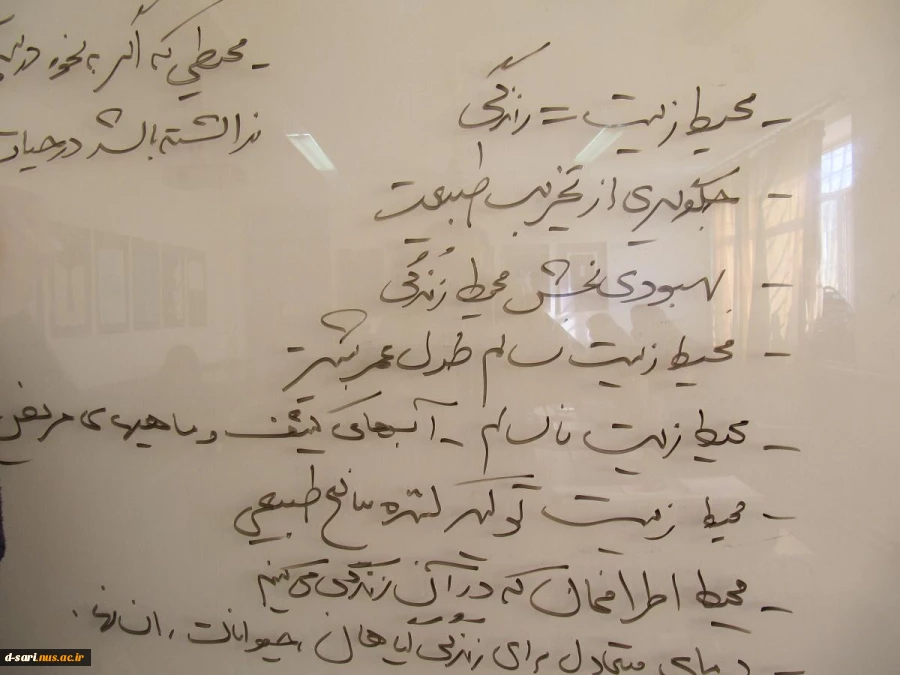 - محیط زیست = زندگی
- جلوگیری از تخریب طبیعت
- بهبودی بخش محیط زندگی
- محیط زیست سالم طول عمر بیشتر
- محیط زیست ناسالم - آبهای کثیف و ماهیهای مریض
- محیط زیست تولید کننده منابع طبیعی
- محیط اطرافمان که در آن زندگی می کنیم
- دمای متعادل برای زندگی گیاهان، حیوانات، انسانها.
- محیطی که اگر به نحو
نداشته باشد در حیات
d-sari.nus.ac.ir